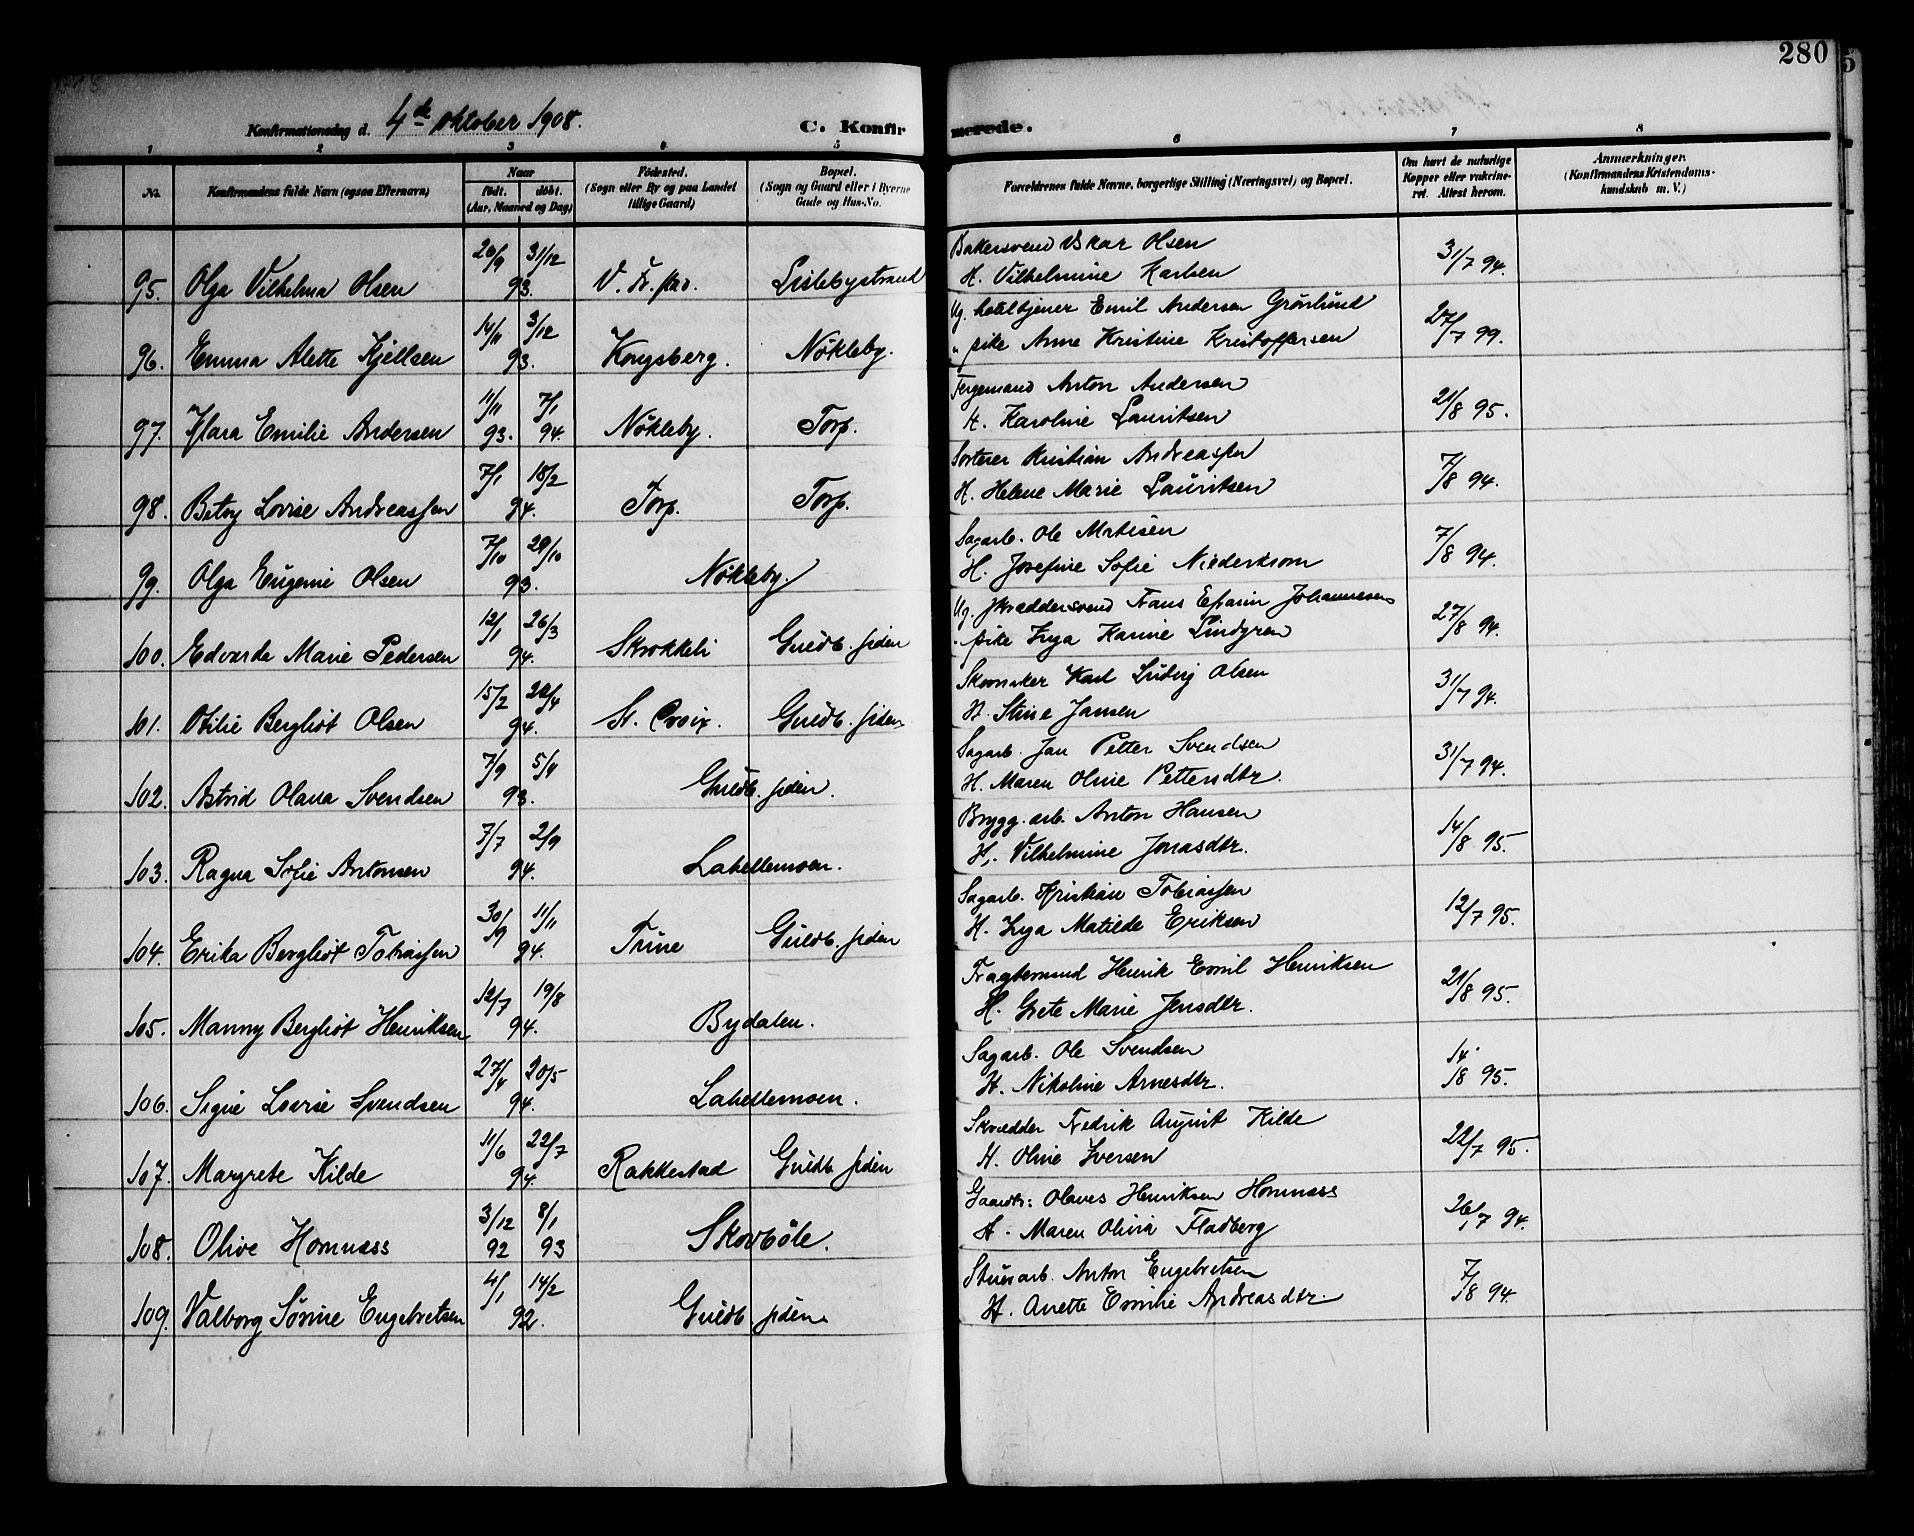 280
5
Konfirmationsdag d. 4de Oktober 1908.
C. Konfir
merede.
1 2 3 4 5 6 7 8
No. Konfirmandens fulde Navn (ogsaa Efternavn) Naar født. døbt. (Aar, Maaned og Dag) Fødested. (Sogn eller By og paa Landet tillige Gaard) Bopæl. (Sogn og Gaard eller i Byerne Gade og Hus-No. Forældrenes fulde Navne, borgerlige Stilling (Næringsvei) og Bopæl. Om havt de naturlige Kopper eller vakcineret. Attest herom. Anmærkninger. (Konfirmandens Kristendomskundskab m. V.)
20/9 31/12 Bakersvend Oskar Olsen
95. Olga Vilhelma Olsen 93. V. Fr.stad. Lislebystrand H. Vilhelmine Karlsen 31/7 94.
14/11 3/12 Ug. hoteltjener Emil Andersen Grönlund
96. Emma Alette Kjellsen 93. Kongsberg. Nökleby. " pike Anne Kristine Kristoffersen 27/7 99.
11/11 7/1 Fergemand Anton Andersen
97. Klara Emilie Andersen 93. 94. Nökleby. Torp. H. Karoline Lauritsen 21/8 95.
7/1 18/2 Sorterer Kristian Andreassen
98. Betsy Lovise Andreassen 94. Torp. Torp. H. Helene Marie Lauritsen 7/8 94.
7/10 29/10 Sagarb. Ole Matisen
99. Olga Eugenie Olsen 93. Nökleby. H. Josefine Sofie Niederstrom 7/8 94.
12/1 26/3 Ug. skræddersvend Frans Efraim Johannesen
100. Edvarda Marie Pedersen 94. Skrokkeli Guldb. siden " pike Inga Karine Lindgren 27/8 94.
15/2 22/4 Skomaker Karl Ludvig Olsen
101. Otilie Bergliot Olsen 94. St. Croix. Guldb. siden H. Stine Jansen 31/7 94.
7/9 5/11 Sagarb. Jan Petter Svendsen
102. Astrid Olana Svendsen 93. Guldb. siden. H. Maren Oline Pettersdtr. 31/7 94.
7/7 2/9 Brygg. arb. Anton Hansen
103. Ragna Sofie Antonsen 94. Lahellemoen. H. Vilhelmine Jonasdtr. 14/8 95.
30/9 11/11 Sagarb. Kristian Tobiassen
104. Erika Bergliot Tobiassen 94. Trine Guldb. siden H. Inga Matilde Eriksen 12/7 95.
12/7 19/8 Fragtemand Henrik Emil Henriksen
105. Manny Bergliot Henriksen 94. Bydalen. H. Grete Marie Jensdtr. 21/8 95.
27/4 20/5 Sagarb. Ole Svendsen
106. Signe Lovise Svendsen 94. Lahellemoen. H. Nikoline Arnesdtr. 14/8 95.
11/6 22/7 Skrædder Fredrik August Kilde
107. Margrete Kilde 94. Rakkestad Guldb. siden H. Oline Iversen 22/7 95.
3/12 8/1 Gaardbr: Olaves Henriksen Hornnæss
108. Olive Hornnæss 92 93 Skovböle. H. Maren Olivia Fladberg 26/7 94.
4/1 14/2 Stuerarb. Anton Engebretsen
109. Valborg Sörine Engebretsen 92. Guldb. siden H. Anette Emilie Andreasdtr. 7/8 94.